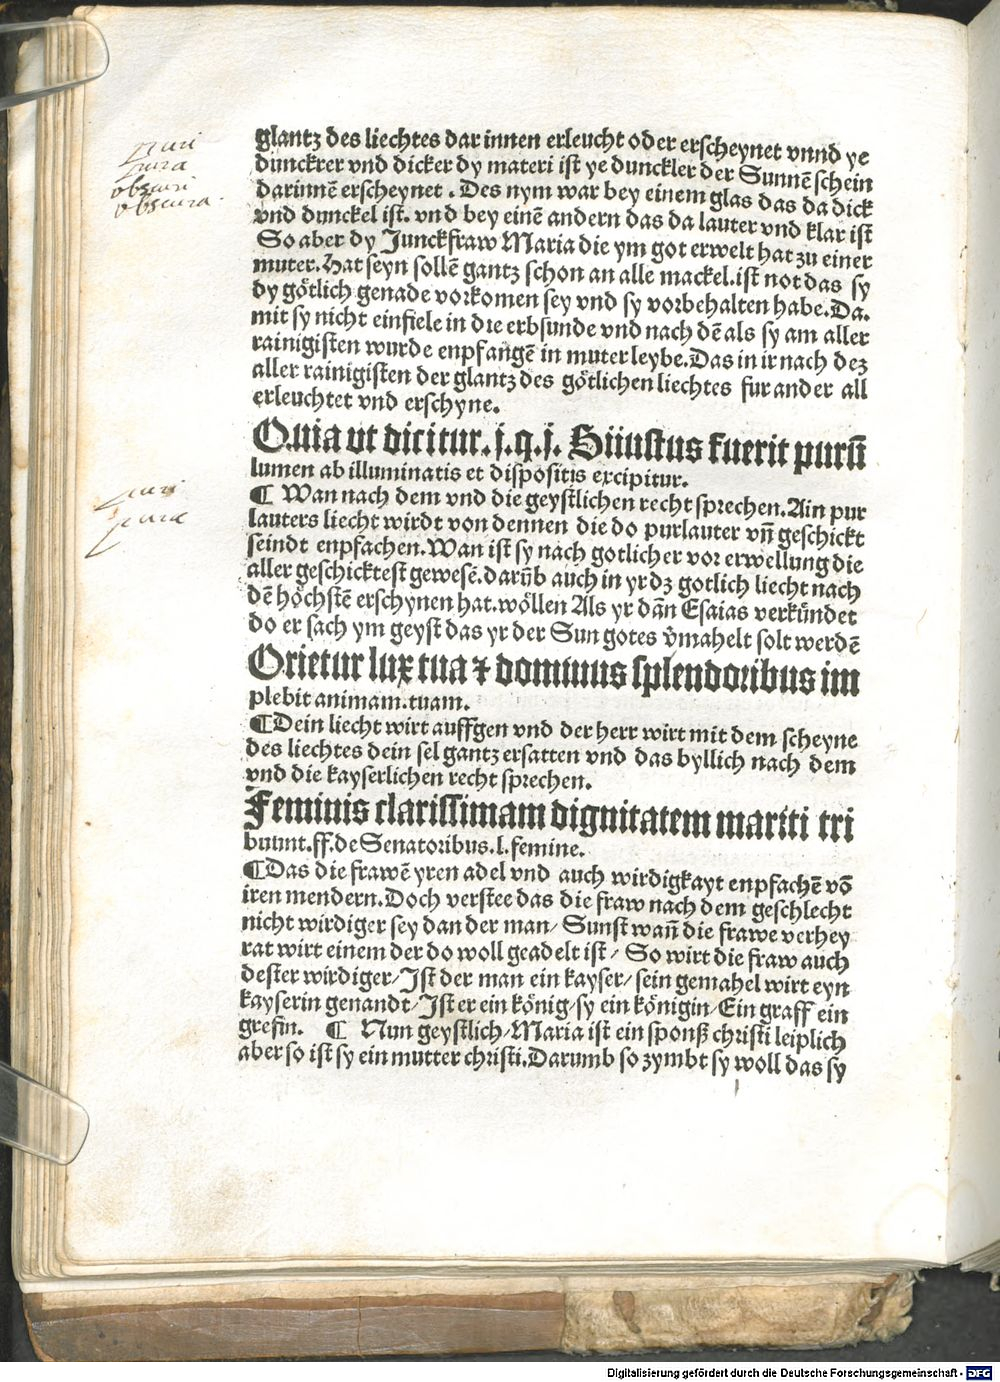 glantz des liechtes dar innen erleucht oder erscheynet vnnd ye
dunckrer vnd dicker dy materi ist ye dunckler der Sunnē schein
darinnē erscheynet. Des nym war bey einem glas das da dick
vnd dunckel ist. vnd bey einē andern das da lauter vnd klar ist
So aber dy Junckfraw Maria die ym got erwelt hat zu einer
muter. Hat seyn sollē gantz schon an alle mackel. ist not das sy
dy gȯtlich genade vorkomen sey vnd sy vorbehalten habe. Da.
mit sy nicht einfiele in die erbsunde vnd nach dē als sy am aller
rainigisten wurde enpfangē in muter leybe. Das in ir nach dez
aller rainigisten der glantz des gȯtlichen liechtes fur ander all
erleuchtet vnd erschyne.
Quia vt dicitur. j. q. j. Si iustus fuerit purū
lumen ab illuminatis et dispositis excipitur.
¶ Wan nach dem vnd die geystlichen recht sprechen. Ain pur
lauters liecht wirdt von dennen die do purlauter vn̄ geschickt
seindt enpfachen. Wan ist sy nach gotlicher vor erwellung die
aller geschicktest gewesē. darūb auch in yr dz gotlich liecht nach
dē hȯchstē erschynen hat. wȯllen Als yr dān Esaias verkündet
do er sach ym geyst das yr der Sun gotes v̄mahelt solt werdē
Orietur lux tua ⁊ dominus splendoribus im
plebit animam. tuam.
¶ Dein liecht wirt auffgen vnd der herr wirt mit dem scheyne
des liechtes dein sel gantz ersatten vnd das byllich nach dem
vnd die kayserlichen recht sprechen.
Feminis clarissimam dignitatem mariti tri
buunt. ff. de Senatoribus. l. femine.
¶ Das die frawē yren adel vnd auch wirdigkayt enpfachē vō
iren mendern. Doch verstee das die fraw nach dem geschlecht
nicht wirdiger sey dan der man/ Sunst wan̄ die frawe verhey
rat wirt einem der do woll geadelt ist/ So wirt die fraw auch
dester wirdiger/ Ist der man ein kayser/ sein gemahel wirt eyn
kayserin genandt/ Ist er ein kȯnig/ sy ein kȯnigin/ Ein graff ein
grefin. ¶ Nun geystlich/ Maria ist ein sponß christi leiplich
aber so ist sy ein mutter christi. Darumb so zymbt sy woll das sy
puri
pura
obscuri
obscura.
puri
pura
Digitalisierung gefördert durch die Deutsche Forschungsgemeinschaft - DFG